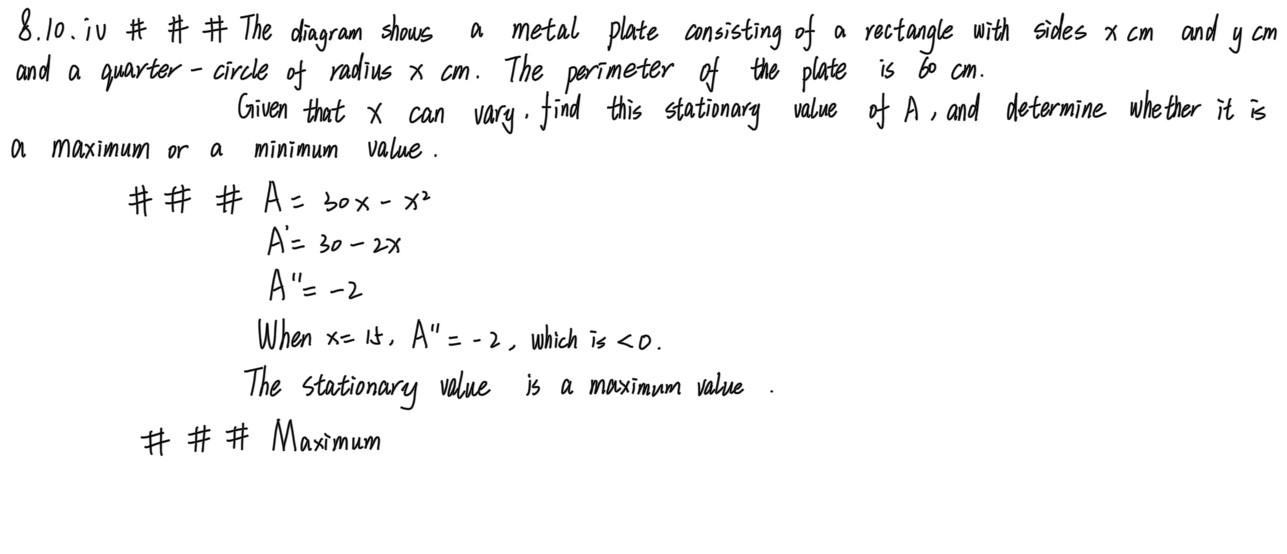 8.10.iv # # # The diagram shows a metal plate consisting of a rectangle with sides x cm and y cm
and a quarter - circle of radius x cm. The perimeter of the plate is 60 cm.
Given that x can vary, find this stationary value of A, and determine whether it is
a maximum or a minimum value.
# # # A = 30x - x²
A' = 30 - 2x
A'' = -2
When x = 15, A'' = -2, which is < 0.
The stationary value is a maximum value.
# # # Maximum